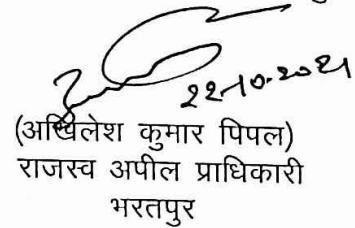 22-10-2021
(अखिलेश कुमार पिपल)
राजस्व अपील प्राधिकारी
भरतपुर